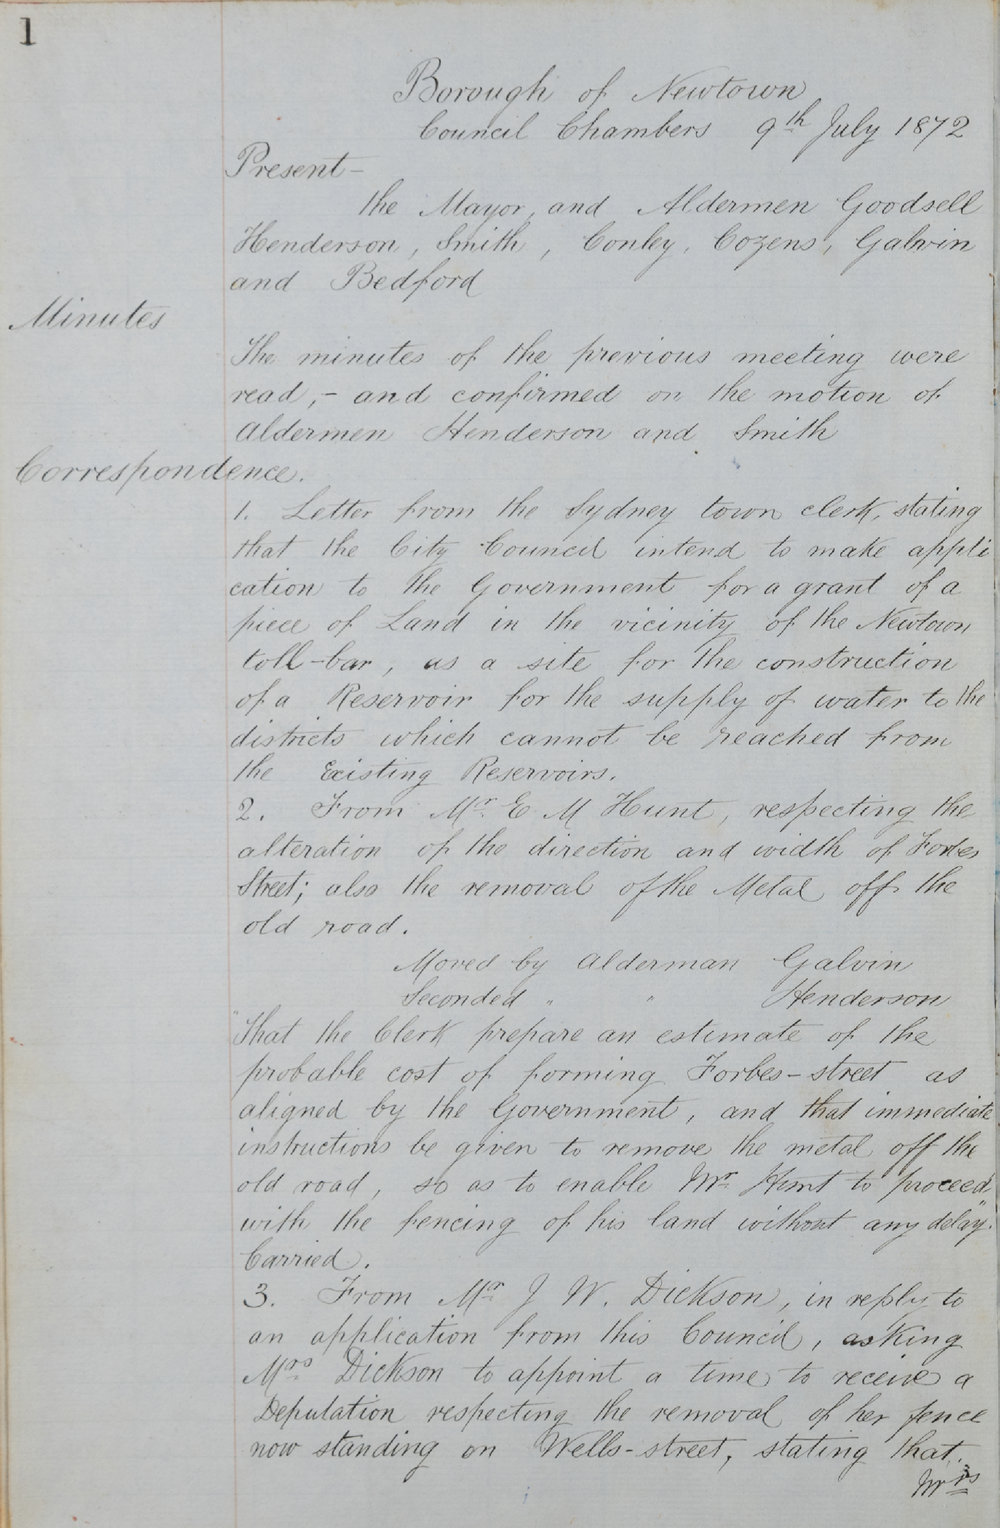 1
Borough of Newtown
Council Chambers 9th July 1872
Present-
the Mayor, and Aldermen Goodsell
Henderson, Smith, Conley, Cozens, Galvin
and Bedford
Minutes
The minutes of the previous meeting were
read,- and confirmed on the motion of
Aldermen Henderson and Smith
Correspondence.
1. Letter from the Sydney town clerk, stating
that the City Council intend to make appli
cation to the Government for a grant of a
piece of Land in the vicinity of the Newtown
toll-bar, as a site for the construction
of a Reservoir for the supply of water to the
districts which cannot be reached from
the Existing Reservoirs.
2. From Mr. E M Hunt, respecting the
alteration of the direction and width of Forbes
Street; also the removal of the Metal off the
old road.
Moved by Alderman Galvin
Seconded " " Henderson
"That the Clerk prepare an estimate of the
probable cost of forming Forbes-street as
aligned by the Government, and that immediate
instructions be given to remove the metal off the
old road, so as to enable Mr. Hunt to proceed
with the fencing of his land without any delay".
Carried.
3. From Mr J W. Dickson, in reply to
an application from this Council, asking
Mrs. Dickson to appoint a time to receive a
Deputation respecting the removal of her fence
now standing on Wells-street, stating that.
Mrs